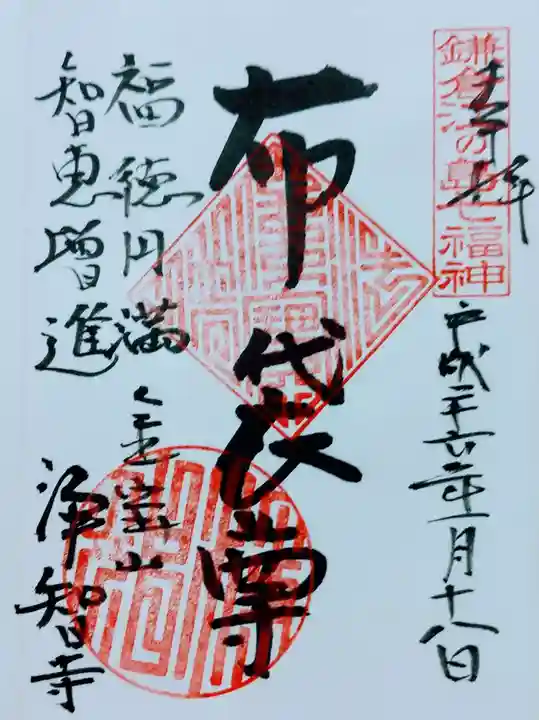 鎌倉江の島七福神
奉拝
平成二十六年一月十八日
布袋尊
福徳円満
智恵増進
金宝山
浄智寺